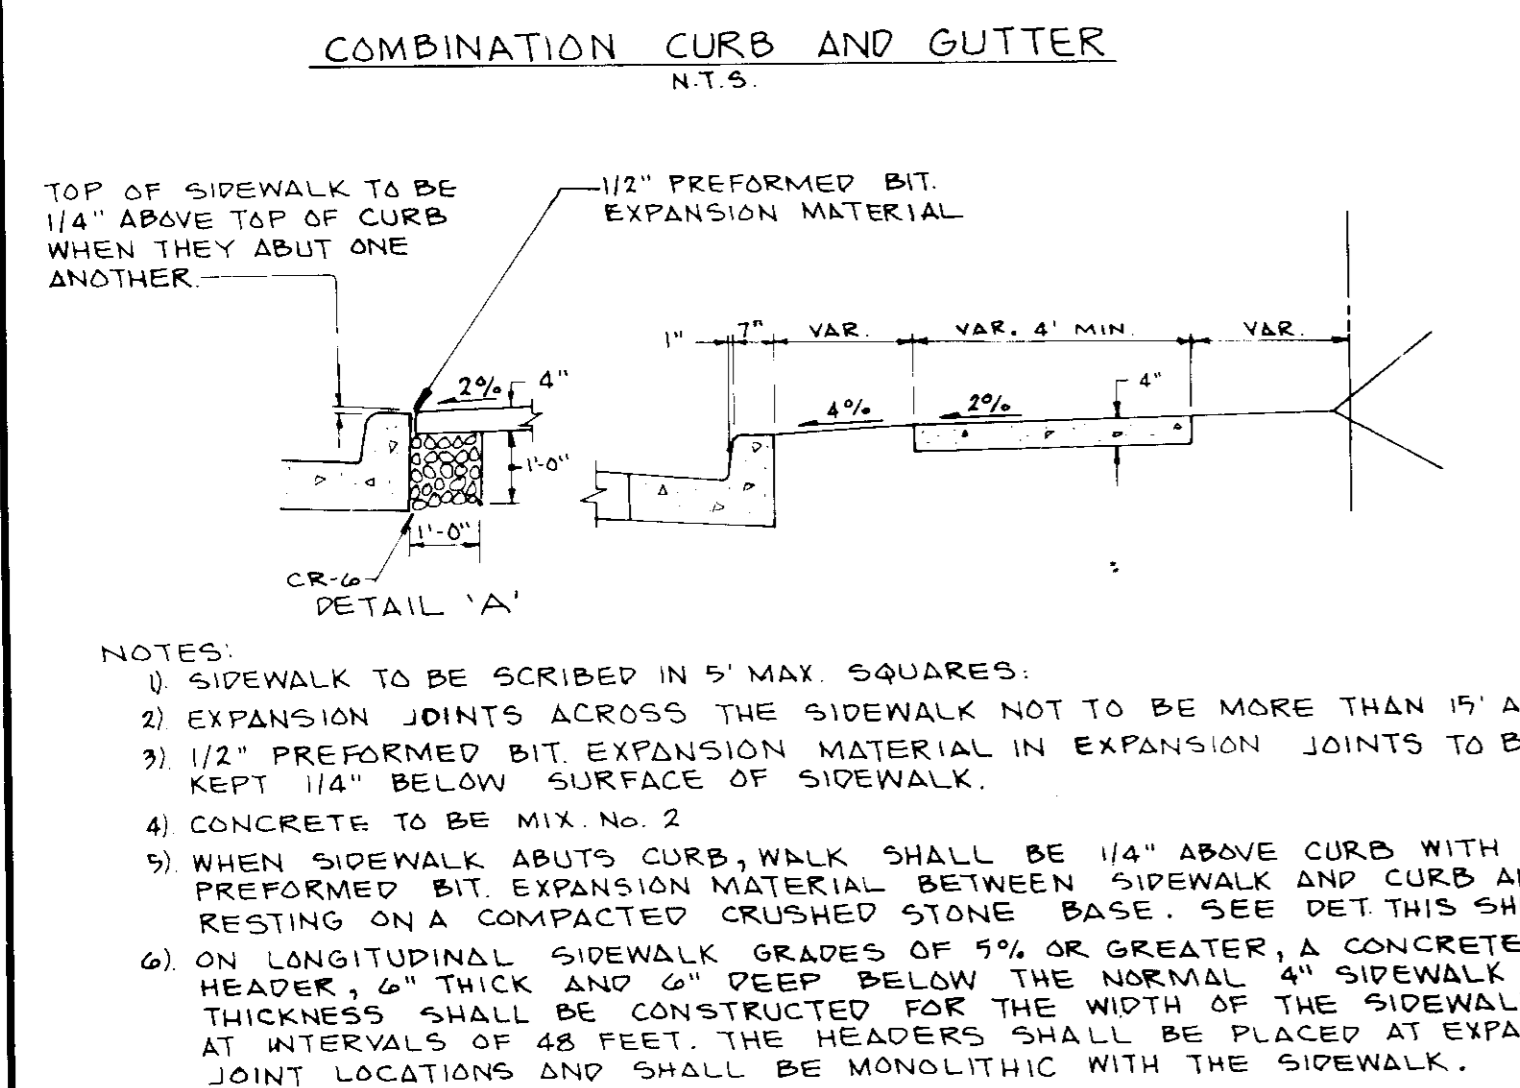 COMBINATION CURB AND GUTTER
N.T.S.
TOP OF SIDEWALK TO BE
1/4" ABOVE TOP OF CURB
WHEN THEY ABUT ONE
ANOTHER.
1/2" PREFORMED BIT.
EXPANSION MATERIAL
2% 4"
1'-0"
1'-0"
CR-6
DETAIL 'A'
1" 7" VAR. VAR. 4' MIN. VAR.
4% 2% 4"
NOTES:
1). SIDEWALK TO BE SCRIBED IN 5' MAX. SQUARES.
2) EXPANSION JOINTS ACROSS THE SIDEWALK NOT TO BE MORE THAN 15' A
3). 1/2" PREFORMED BIT. EXPANSION MATERIAL IN EXPANSION JOINTS TO B
KEPT 1/4" BELOW SURFACE OF SIDEWALK.
4). CONCRETE TO BE MIX. No. 2
5). WHEN SIDEWALK ABUTS CURB, WALK SHALL BE 1/4" ABOVE CURB WITH
PREFORMED BIT. EXPANSION MATERIAL BETWEEN SIDEWALK AND CURB A
RESTING ON A COMPACTED CRUSHED STONE BASE. SEE DET. THIS SH
6). ON LONGITUDINAL SIDEWALK GRADES OF 5% OR GREATER, A CONCRETE
HEADER, 6" THICK AND 6" DEEP BELOW THE NORMAL 4" SIDEWALK
THICKNESS SHALL BE CONSTRUCTED FOR THE WIDTH OF THE SIDEWAL
AT INTERVALS OF 48 FEET. THE HEADERS SHALL BE PLACED AT EXPA
JOINT LOCATIONS AND SHALL BE MONOLITHIC WITH THE SIDEWALK.